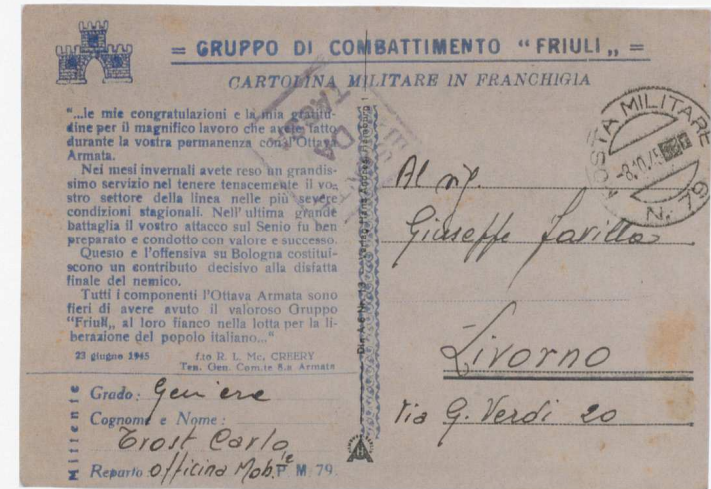 = GRUPPO DI COMBATTIMENTO "FRIULI„ =
CARTOLINA MILITARE IN FRANCHIGIA
"...le mie congratulazioni e la mia gratitu-
dine per il magnifico lavoro che avete fatto
durante la vostra permanenza con l'Ottava
Armata.
Nei mesi invernali avete reso un grandis-
simo servizio nel tenere tenacemente il vo-
stro settore della linea nelle più severe
condizioni stagionali. Nell'ultima grande
battaglia il vostro attacco sul Senio fu ben
preparato e condotto con valore e successo.
Questo e l'offensiva su Bologna costitui-
scono un contributo decisivo alla disfatta
finale del nemico.
Tutti i componenti l'Ottava Armata sono
fieri di avere avuto il valoroso Gruppo
"Friuli„ al loro fianco nella lotta per la li-
berazione del popolo italiano..."
23 giugno 1945
f.to R. L. Mc. CREERY
Ten. Gen. Com.te 8.a Armata
Mittente
Grado: Geniere
Cognome e Nome:
Trost Carlo
Reparto Officina Mob.le P M 79
DA
POSTA MILITARE
-8.10.45
N. 79
Al sig.
Giuseppe
Livorno
Via G. Verdi 20